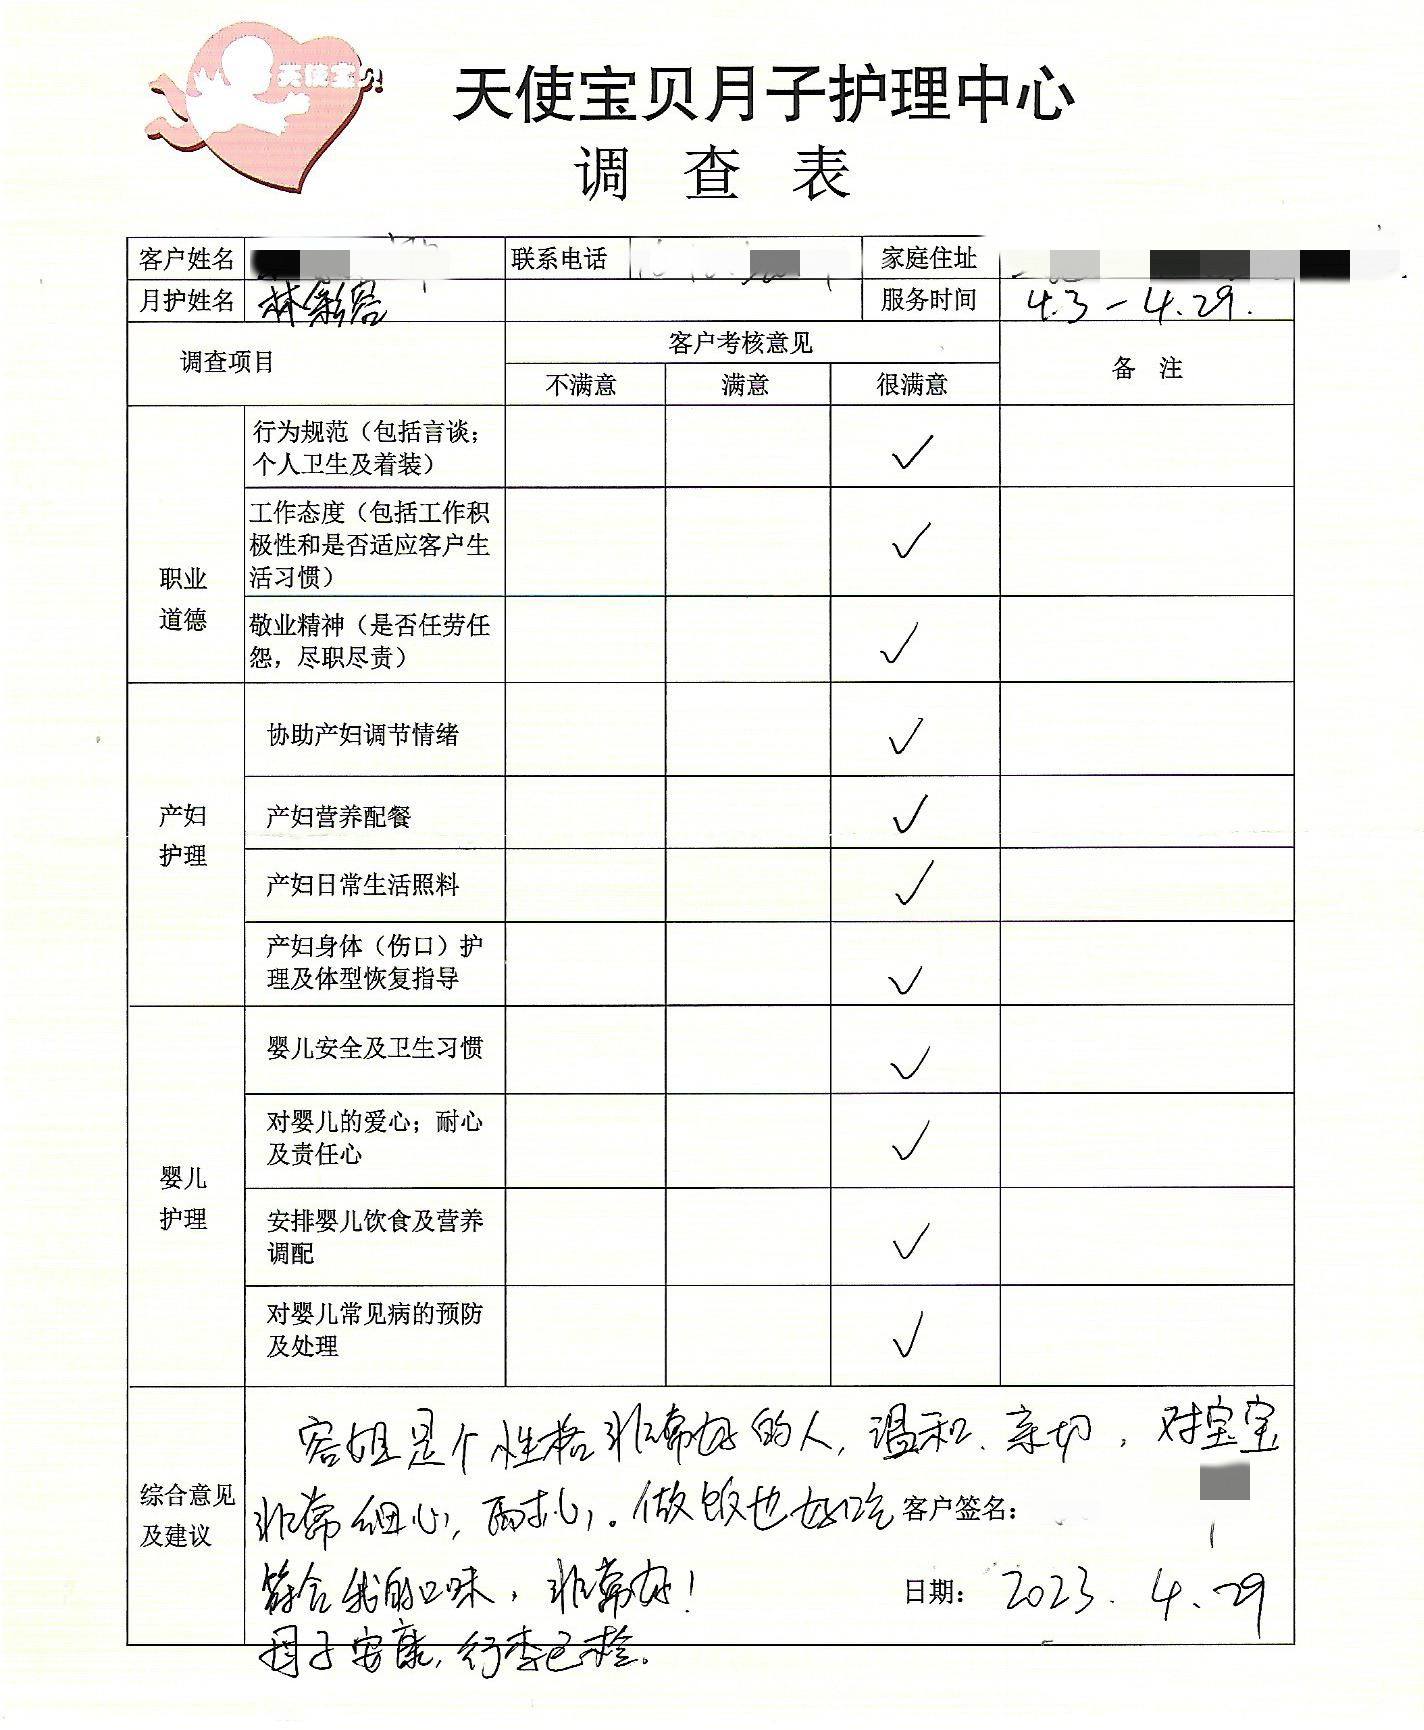 天使宝贝
天使宝贝月子护理中心
调 查 表
客户姓名 联系电话 家庭住址
月护姓名 林彩容 服务时间 4.3-4.29.
调查项目 客户考核意见 备 注
不满意 满意 很满意
职业
道德
行为规范（包括言谈；
个人卫生及着装） ✓
工作态度（包括工作积
极性和是否适应客户生
活习惯） ✓
敬业精神（是否任劳任
怨，尽职尽责） ✓
产妇
护理
协助产妇调节情绪 ✓
产妇营养配餐 ✓
产妇日常生活照料 ✓
产妇身体（伤口）护
理及体型恢复指导 ✓
婴儿
护理
婴儿安全及卫生习惯 ✓
对婴儿的爱心；耐心
及责任心 ✓
安排婴儿饮食及营养
调配 ✓
对婴儿常见病的预防
及处理 ✓
综合意见
及建议
容姐是个性格非常好的人，温和、亲切，对宝宝
非常细心，耐心。做饭也好吃
符合我的口味，非常好！
母子安康，行李已检。
客户签名：
日期： 2023.4.29